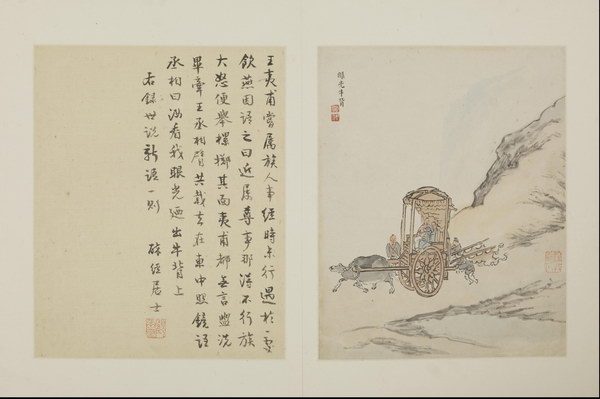 王夷甫嘗屬族人事經時未行遇於一處
飲燕因語之曰近屬尊事那得不行族
大怒便舉樏擲其面夷甫都無言盥洗
畢牽王丞相臂共載去在車中照鏡語
丞相曰汝看我眼光迺出牛背上
右錄世說新語一則 經居士
眼光牛背